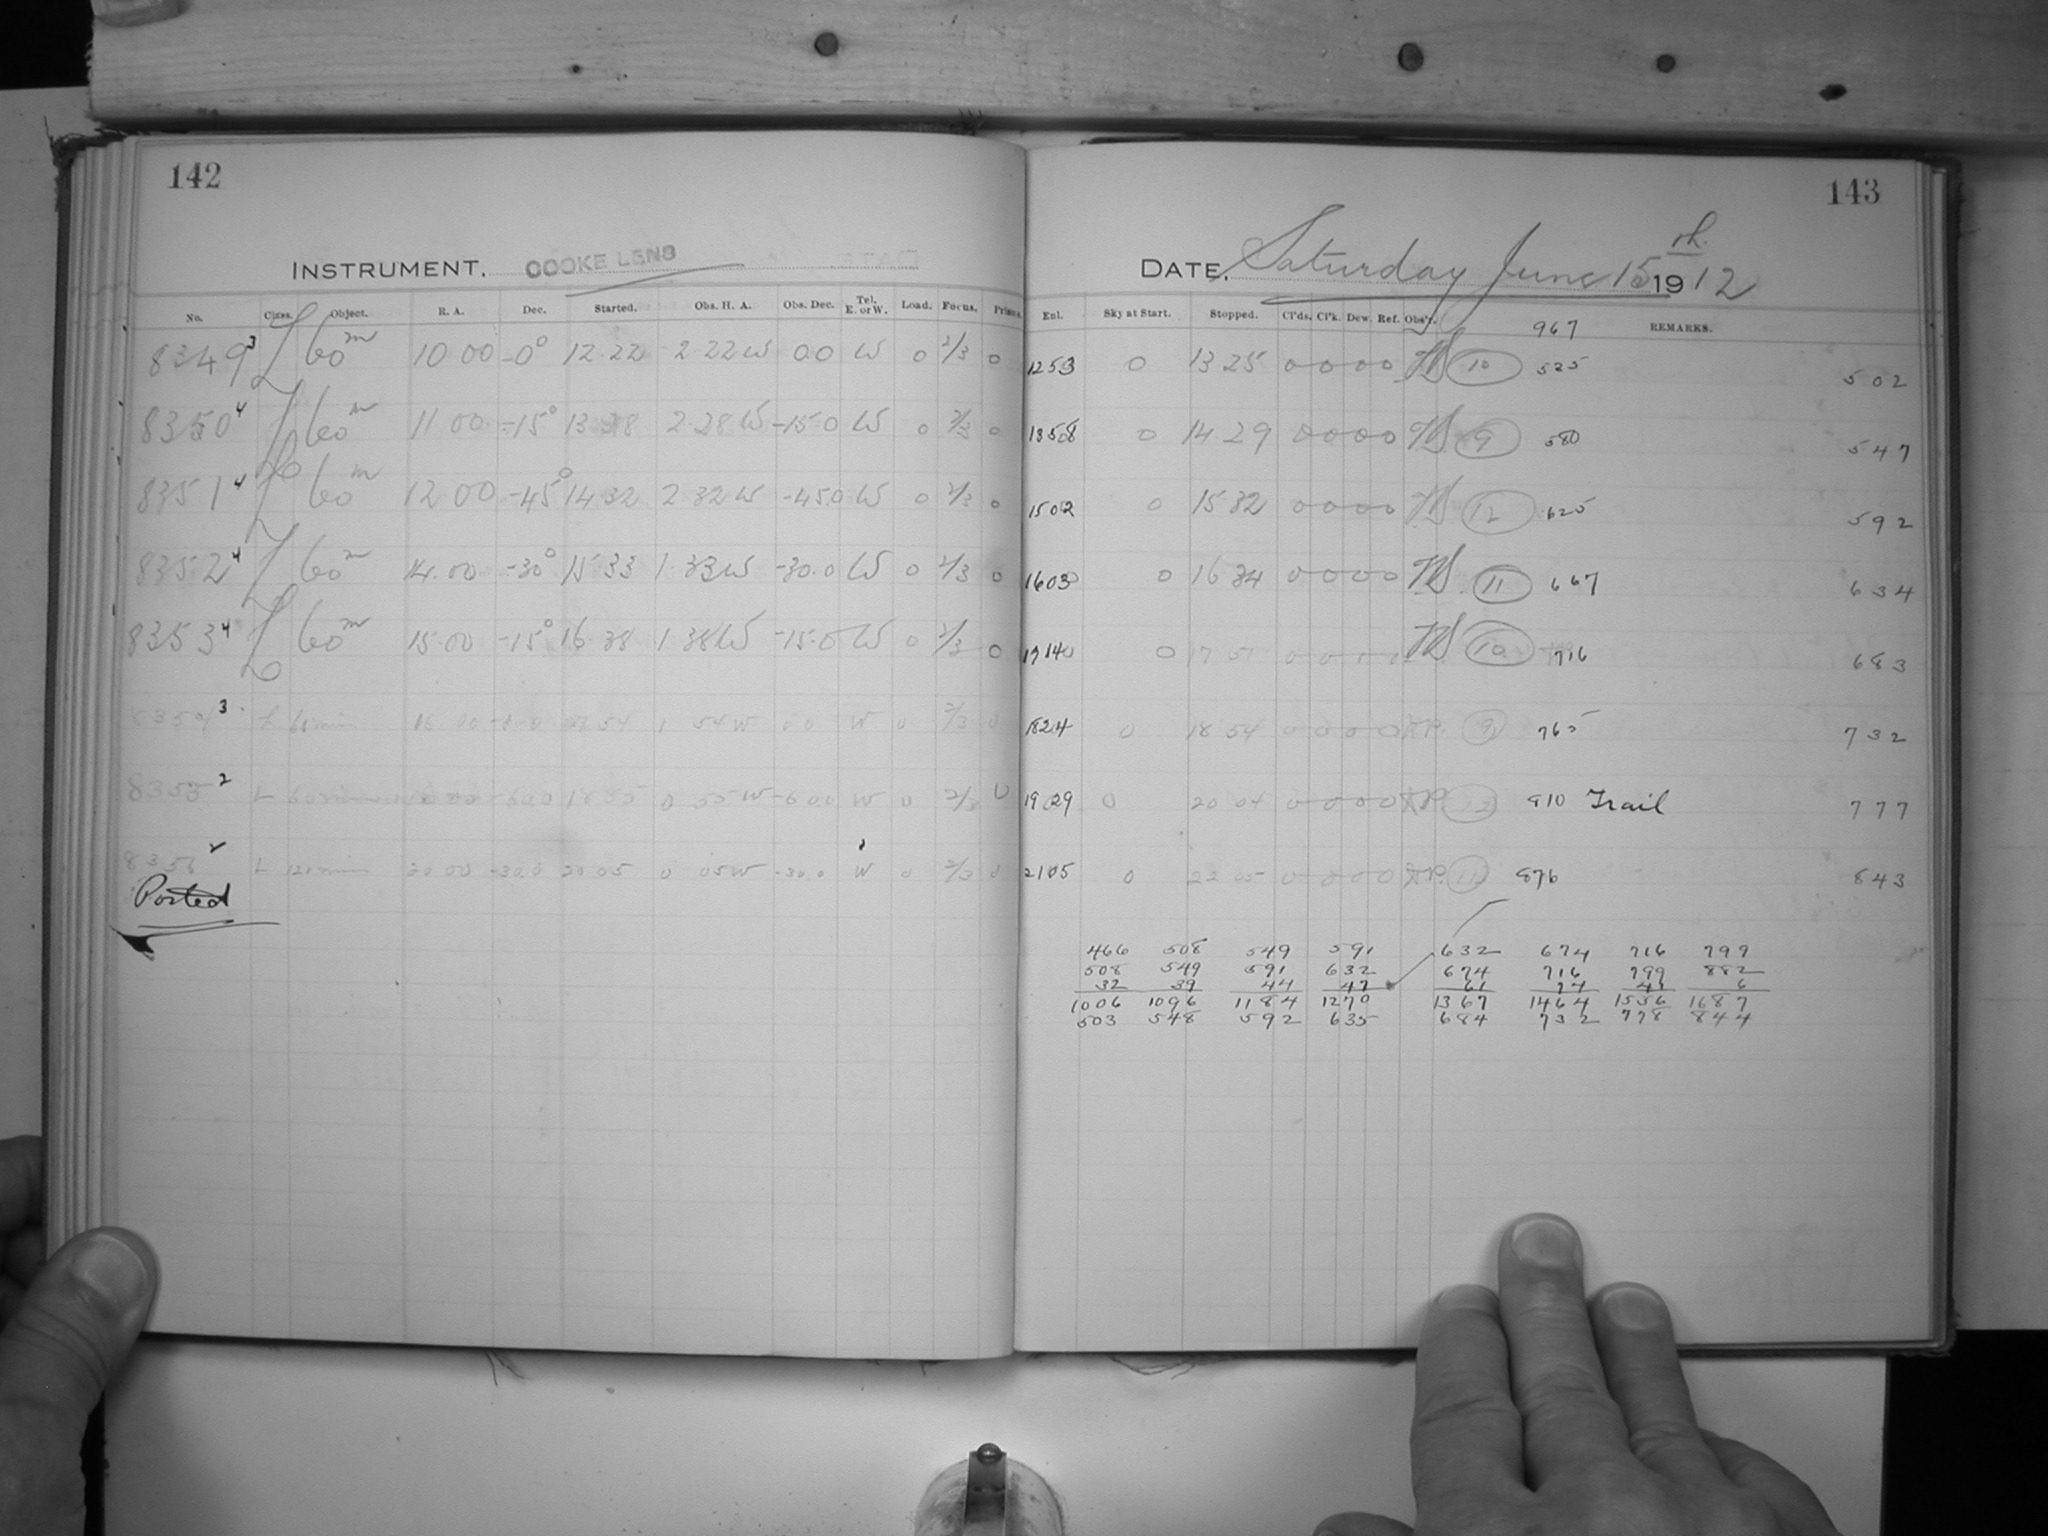 142
INSTRUMENT. COOKE LENS
No. Class. Object. R. A. Dec. Started. Obs. H. A. Obs. Dec. Tel. E. or W. Load. Focus. Prisms.
8349 3 L 60m 10 00 -0° 12 22 2 22 W 0.0 W 0 2/3 0
8350 4 L 60m 11 00 -15° 13 28 2 28 W -15.0 W 0 2/3 0
8351 4 L 60m 12 00 -45° 14 32 2 32 W -45.0 W 0 2/3 0
8352 4 L 60m 14.00 -30° 15 33 1 33 W -30.0 W 0 2/3 0
8353 4 L 60m 15.00 -15° 16 38 1 38 W -15.0 W 0 2/3 0
8354 3 L 60 min 16 00 54 1 54 W 0 0 W 0 2/3 0
8355 2 L -60.0 18 55 0 55 W -60.0 W 0 2/3 0
8356 2 L 121 min 20 00 -30.0 20 05 0 05 W -30.0 W 0 2/3 0
Posted
143
DATE, Saturday June 15th. 1912
Enl. Sky at Start. Stopped. Cl'ds. Cl'k. Dew. Ref. Obs'r. 967 REMARKS.
1253 0 13 25 0 0 0 0 10 525 502
1358 0 14 29 0 0 0 0 9 580 547
1502 0 15 32 0 0 0 0 12 625 592
1603 0 16 34 0 0 0 0 11 667 634
1714 0 17 51 0 0 0 10 716 683
1824 0 18 54 0 0 0 0 9 765 732
1929 0 20 04 0 0 0 0 810 Trail 777
2105 0 22 05 0 0 0 0 11 876 843
466 508 549 591 632 674 716 799
508 549 591 632 674 716 799 882
32 39 44 47 61 74 41 6
1006 1096 1184 1270 1367 1464 1556 1687
503 548 592 635 684 732 778 844